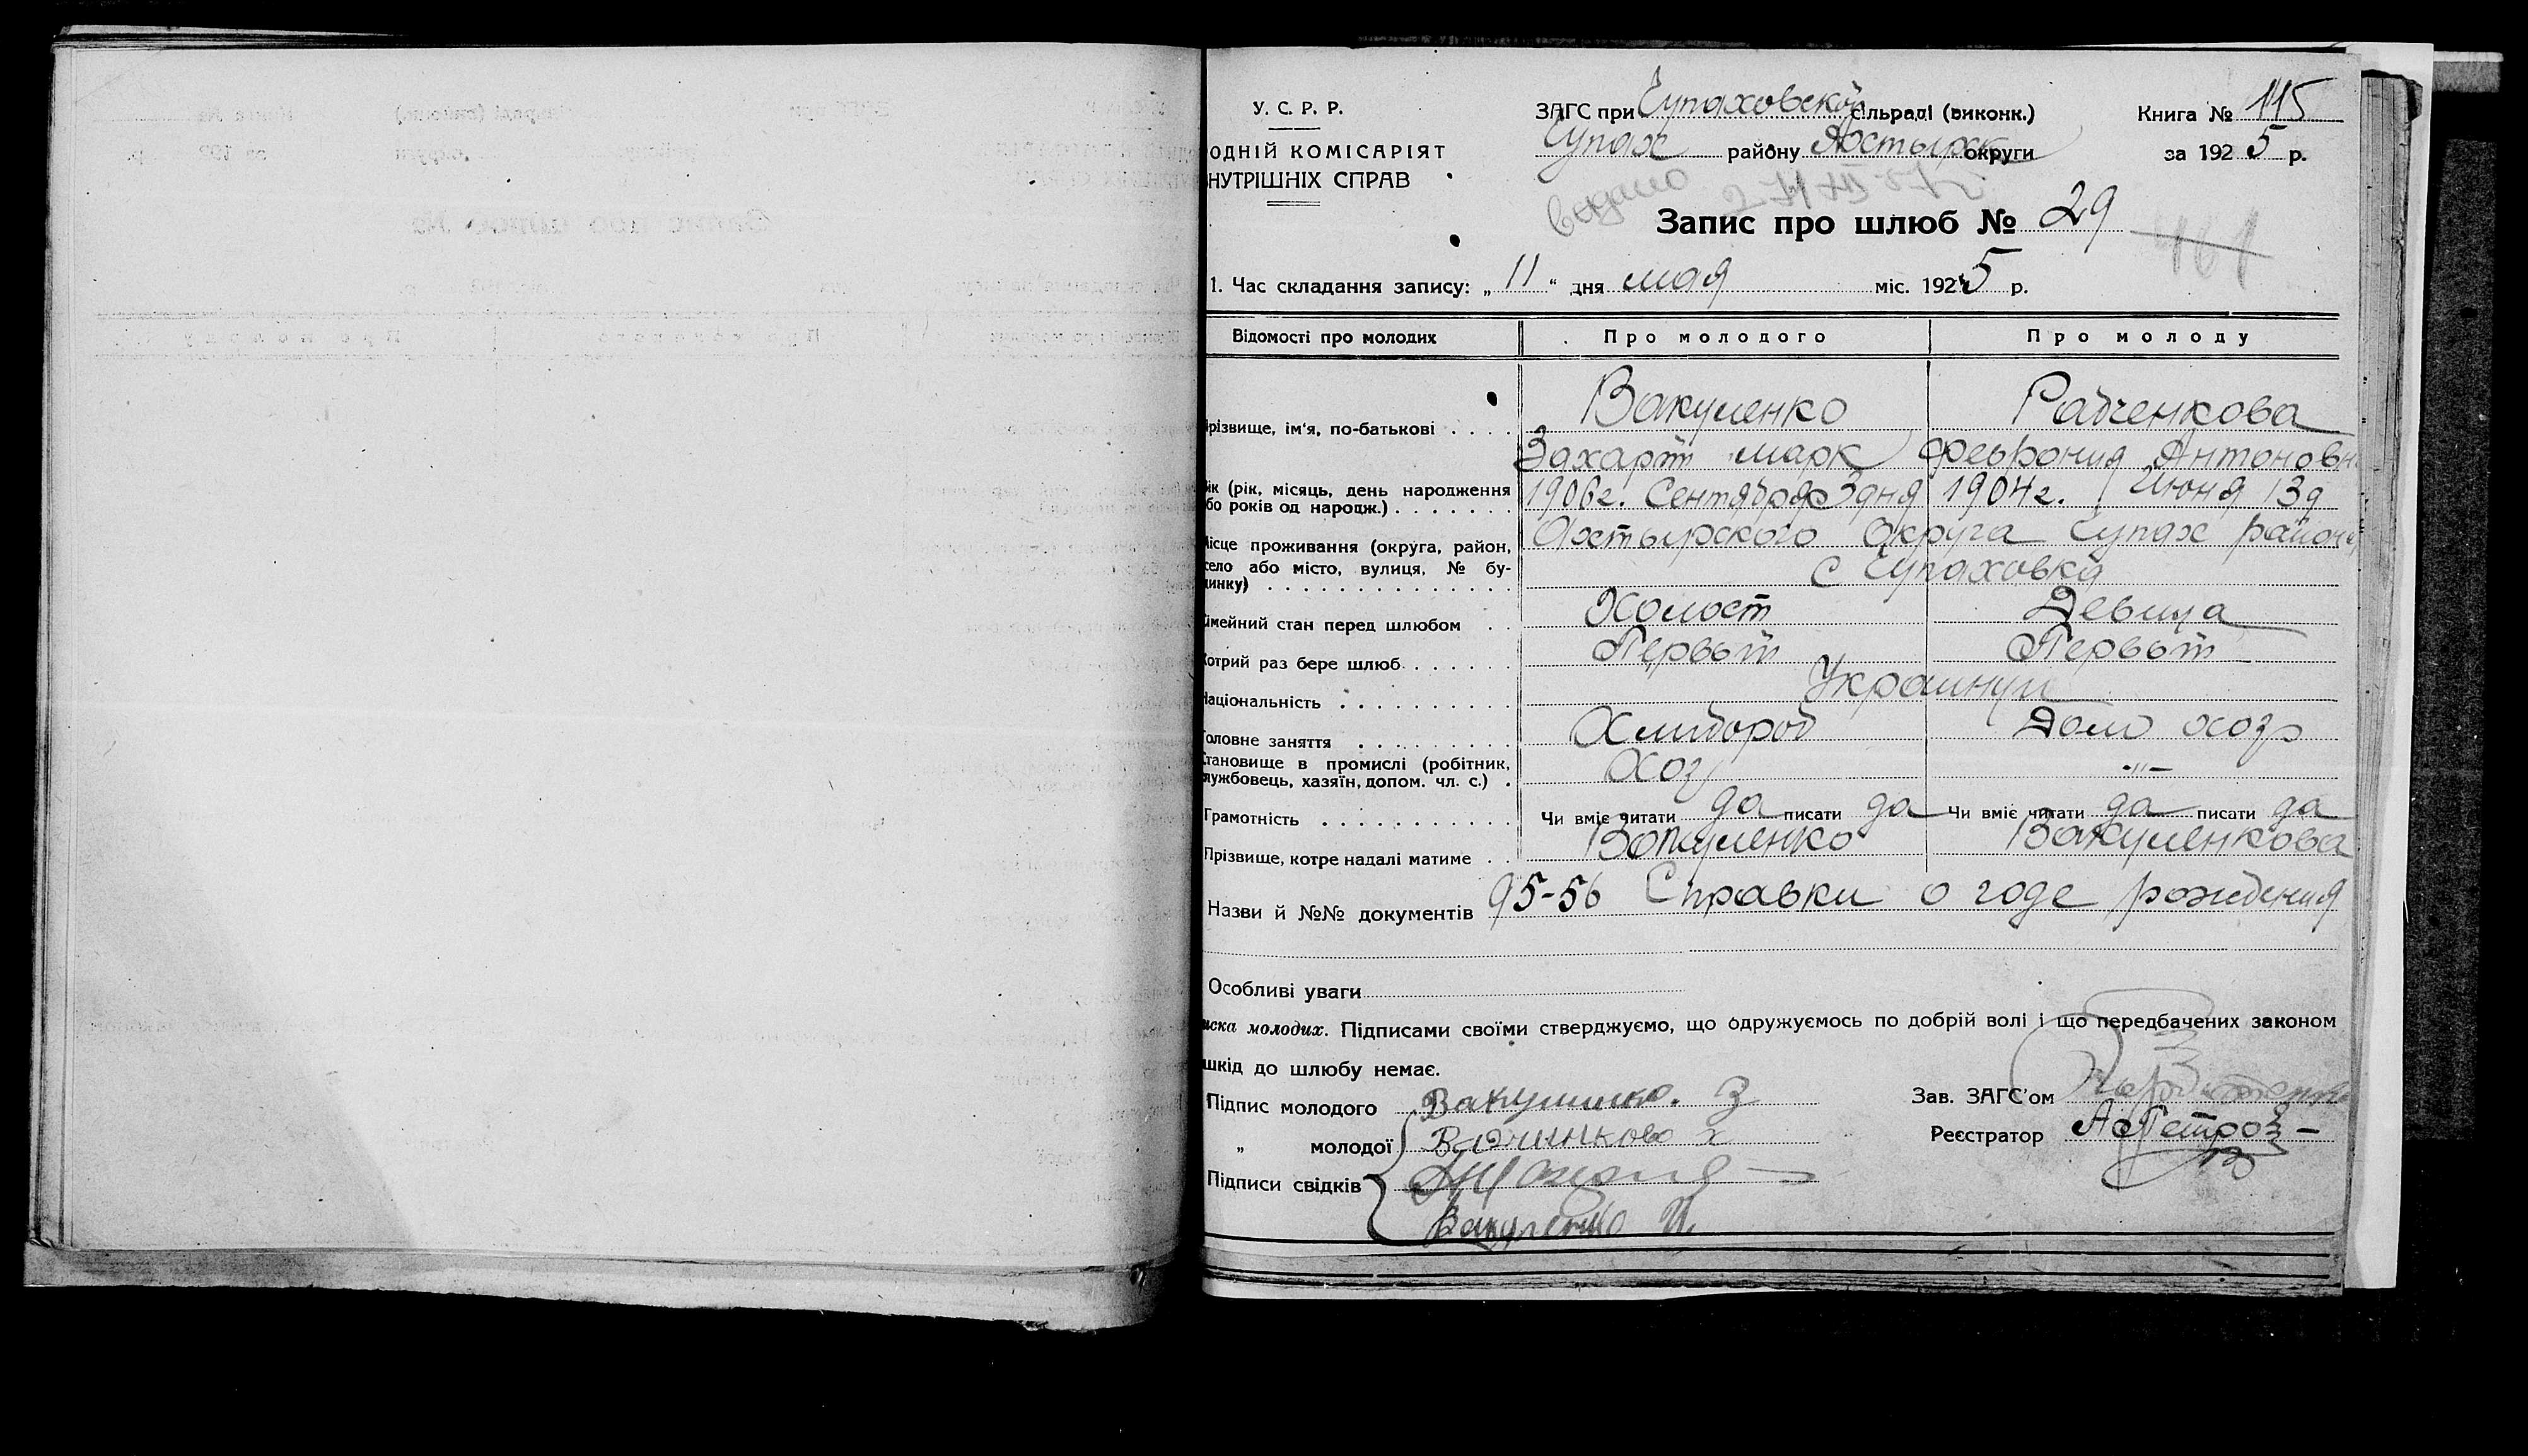 У. С. Р. Р.
ОДНІЙ КОМІСАРІЯТ
НУТРІШНІХ СПРАВ
ЗАГС при Чупаховской сільраді (виконк.)
Чупах району Ахтырск округи
Книга № 115
за 1925 р.
видано
Запис про шлюб № 29
461
1. Час складання запису: „11“ дня мая міс. 1925 р.
Відомості про молодих Про молодого Про молоду
різвище, ім'я, по-батькові . . . . Вакуленко Рабченкова
Захарій марк Феврония Антоновн
ік (рік, місяць, день народження
бо років од народж.) . . . . . . . 1906г. Сентября 3 дня 1904г. Июня 13д
ісце проживання (округа, район, Ахтырского Округа Чупах района
село або місто, вулиця, № бу-
динку) . . . . . . . . . . . . . . . с Чупаховка
імейний стан перед шлюбом . . Холост Девица
отрий раз бере шлюб . . . . . . Первый Первый
аціональність . . . . . . . . . . Украинци
оловне заняття . . . . . . . . . Хлибороб Дом хозр
тановище в промислі (робітник,
лужбовець, хазяїн, допом. чл. с.) . Хоз -"-
Грамотність . . . . . . . . . . . Чи вміє читати да писати да Чи вміє читати да писати да
Прізвище, котре надалі матиме . . Вакуленко Вакуленкова
Назви й №№ документів 95-56 Справки о годе рождения
Особливі уваги
иска молодих. Підписами своїми стверджуємо, що одружуємось по добрій волі і що передбачених законом
шкід до шлюбу немає.
Підпис молодого Вакуленко. З
Зав. ЗАГС'ом
„ молодої
Реєстратор А Петров
Підписи свідків
Вакуленко И.